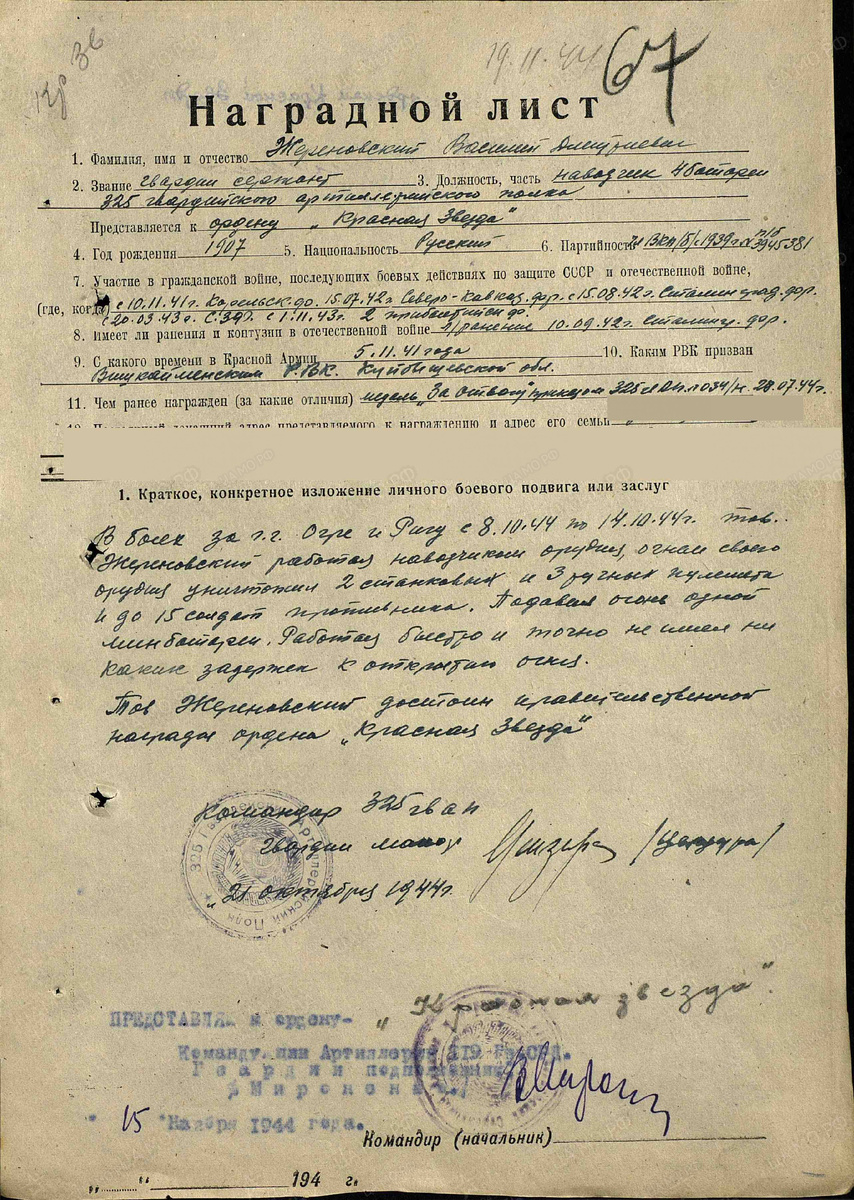 19.11.44 67
Наградной лист
1. Фамилия, имя и отчество Жереновский Василий Дмитриевич
2. Звание гвардии сержант 3. Должность, часть наводчик 4 батареи
325 гвардийского артиллерийского полка
Представляется к ордену „Красная Звезда"
4. Год рождения 1907 5. Национальность Русский 6. Партийность ВКП/б/ с 1939 г. п/б 3945381
7. Участие в гражданской войне, последующих боевых действиях по защите СССР и отечественной войне,
(где, когда) с 10.11.41г. Карельск. до 15.07.42г Северо-Кавказ. фр. с 15.08.42г. Сталинград. фр.
с 20.03.43г. С.З.Ф. с 1.11.43г. 2 прибалтийск.
8. Имеет ли ранения и контузии в отечественной войне ранение 10.09.42г. Сталингр. фр.
9. С какого времени в Красной Армии 5.11.41 года 10. Каким РВК призван
Вешкайменским РВК. Куйбышевской обл.
11. Чем ранее награжден (за какие отличия) медаль „За Отвагу" приказом 325 034/н. 28.07.44г.
представляемого к награждению и адрес его семьи
1. Краткое, конкретное изложение личного боевого подвига или заслуг
В боях за г.г. Огре и Ригу с 8.10.44 по 14.10.44г. тов.
Жереновский работая наводчиком орудия, огнем своего
орудия уничтожил 2 станковых и 3 ручных пулемета
и до 15 солдат противника. Подавил огонь одной
минбатареи. Работал быстро и точно не имел ни
каких задержек к открытию огня.
Тов Жереновский достоин правительственной
награды ордена „Красная Звезда"
Командир 325 гвап
гвардии майор
„21 октября 1944г.
325 Гвардейский Артиллерийский Полк
„Красная звезда".
ПРЕДСТАВЛЯЮ к ордену-
Командующий Артиллерией 119 Гв.СКД.
Гвардии подполковник
/Миронов/
15 Ноября 1944 года.
Командир (начальник)
„ “ 194 г.